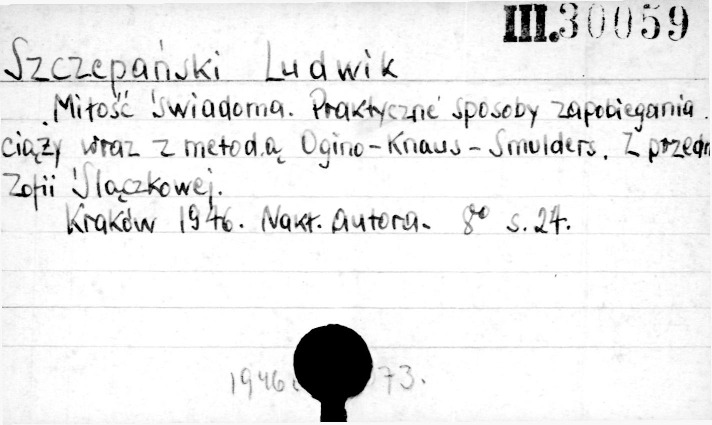 III.30059
Szczepański Ludwik
Miłość świadoma. Praktyczne sposoby zapobiegania
ciąży wraz z metodą Ogino-Knaus-Smulders. Z przedm
Zofii Ślączkowej.
Kraków 1946. Nakł. autora. 8° s. 24.
1946 73.